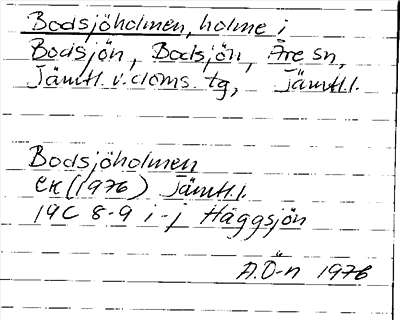 Bodsjöholmen, holme i
Bodsjön, Bodsjön, Åre sn,
Jämtl. v. doms. tg, Jämtl.l.
Bodsjöholmen
EK (1976) Jämtl.l.
19C 8-9 i-j Häggsjön
A.Ö-n 1976